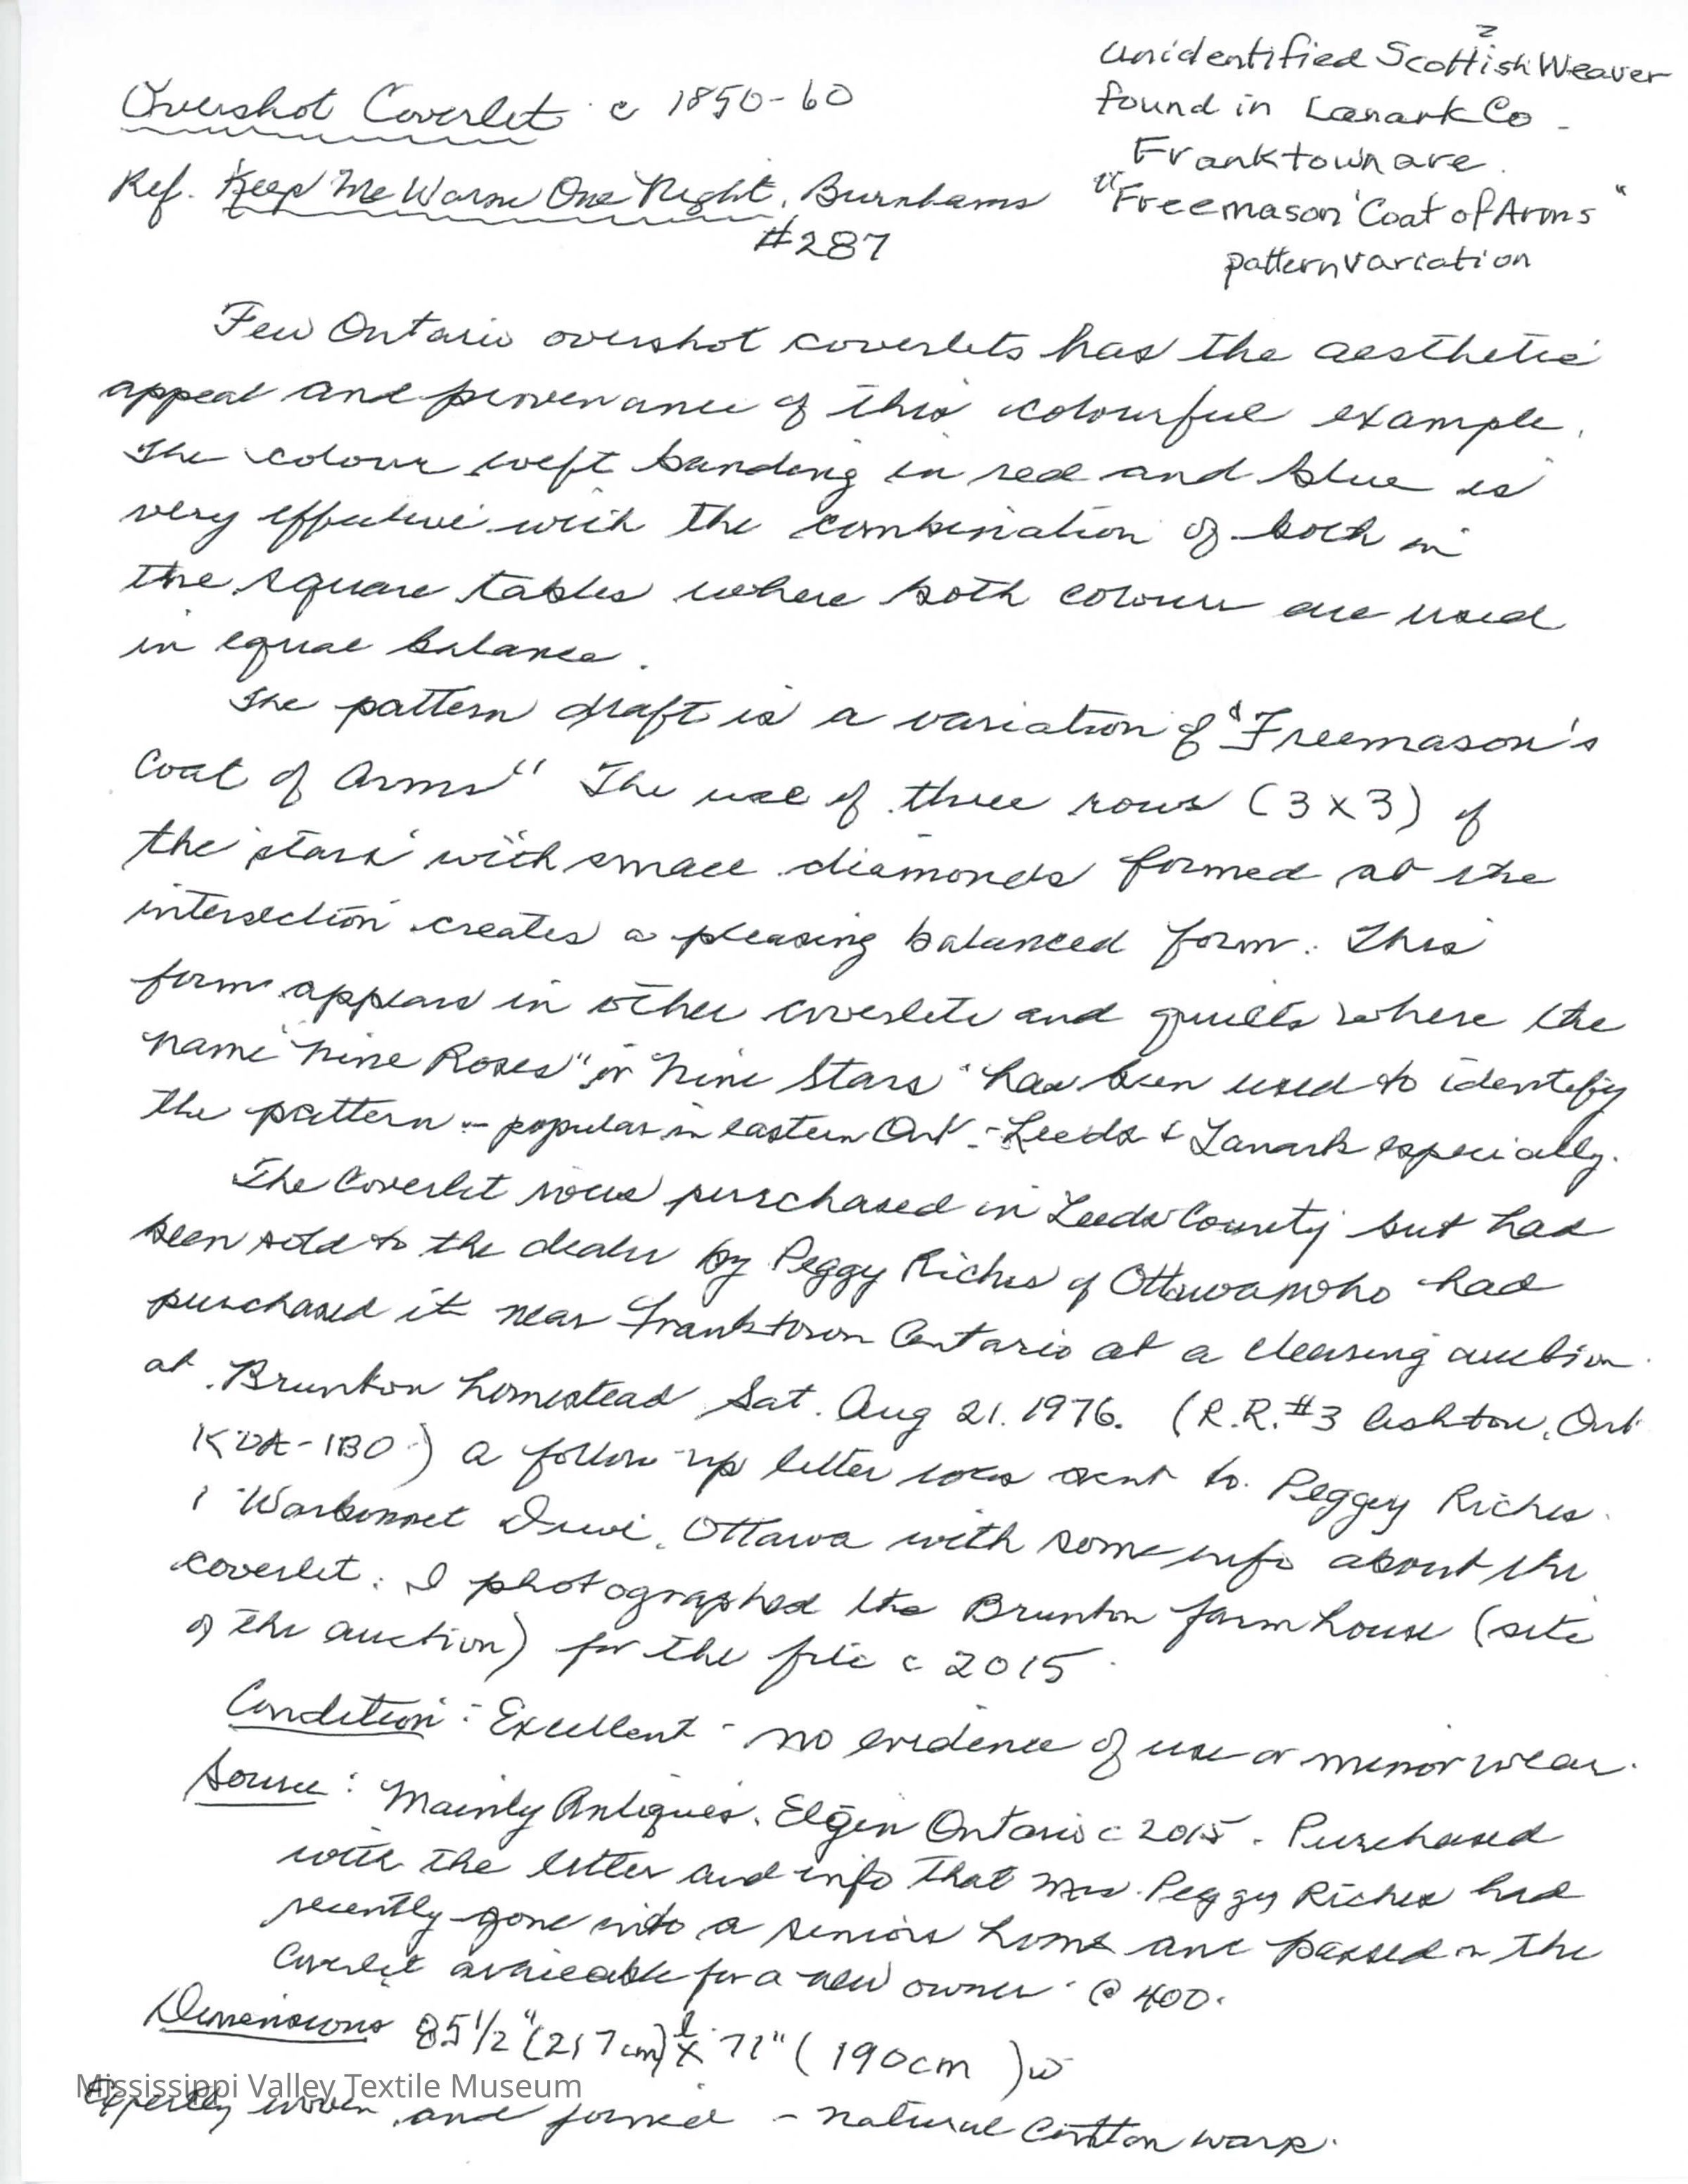 Overshot Coverlet c 1850-60
Ref. "Keep Me Warm One Night, Burnhams
#287
Unidentified Scottish Weaver
found in Lanark Co -
Franktown are.
"Freemason Coat of Arms"
pattern variation
Few Ontario overshot coverlets has the aesthetic
appeal and provenance of this colourful example.
The colour weft banding in red and blue is
very effective with the combination of both in
the square tables where both colours are used
in equal balance.
The pattern draft is a variation of "Freemason's
Coat of Arms" The use of three rows (3x3) of
the 'stars' with small diamonds formed at the
intersection creates a pleasing balanced form. This
form appears in other coverlets and quilts where the
name "Nine Roses" or "Nine Stars" has been used to identify
the pattern - popular in eastern Ont - Leeds & Lanark especially.
The Coverlet was purchased in Leeds County but had
been sold to the dealer by Peggy Riches of Ottawa who had
purchased it near Franktown Ontario at a clearing auction
at Brunton homestead Sat. Aug 21. 1976. (R.R.#3 Ashton, Ont
K0A-1B0) a follow-up letter was sent to Peggy Riches
1 Warbonnet Drive, Ottawa with some info about the
coverlet. I photographed the Brunton farmhouse (site
of the auction) for the file c 2015
Condition: Excellent - no evidence of use or minor wear.
Source: Mainly Antiques, Elgin Ontario c 2015. Purchased
with the letter and info that Mrs. Peggy Riches had
recently gone into a seniors home and passed on the
Coverlet available for a new owner @ 400.
Dimensions 85 1/2" (217cm) l x (190cm) w
Expertly woven and joined - natural cotton warp.
Mississippi Valley Textile Museum